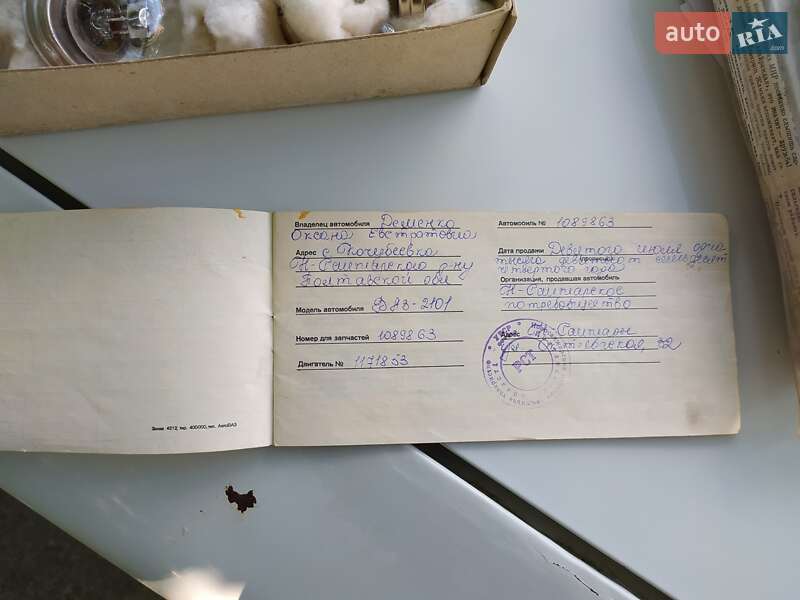 auto RIA.com
Владелец автомобиля Деменко
Оксана Евстратовна
Адрес с. Кочубеевка
Н-Санжарского р-ну
Полтавской обл
Модель автомобиля ВАЗ-2101
Номер для запчастей 1089863
Двигатель № 1171853
Заказ 4212, тир. 400000, тип. АвтоВАЗ
Автомобиль № 1089863
Дата продажи Девятого июля одна
тысяча девятьсот семьдесят
(прописью)
четвертого года
Организация, продавшая автомобиль
Н-Санжарское
потребобщество
Адрес Санжары
72